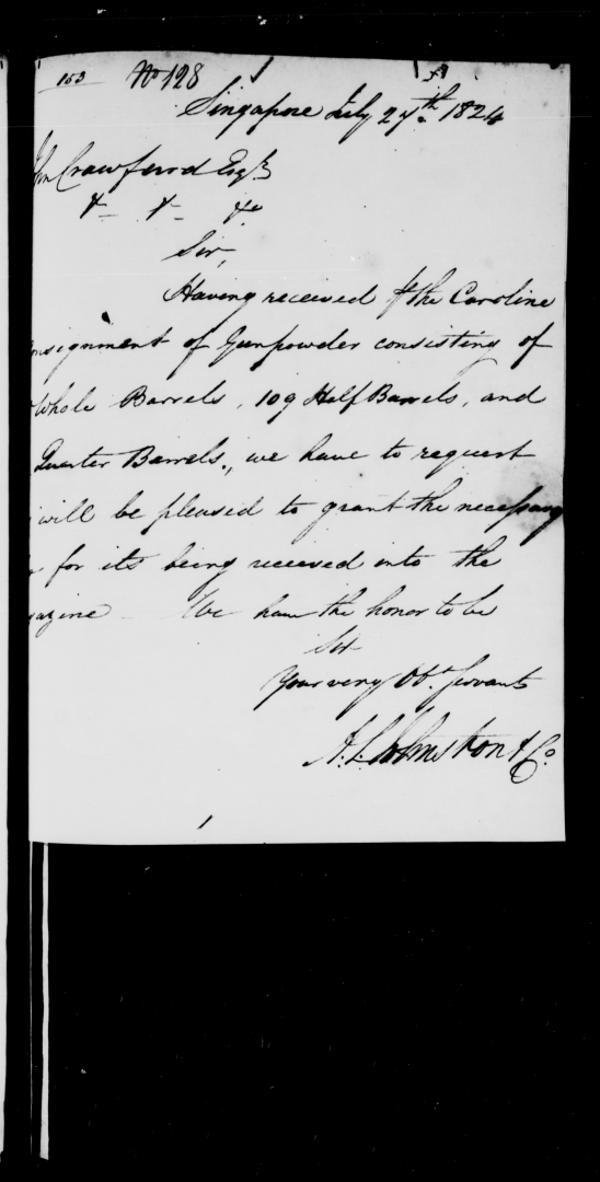 153 No 128
Singapore July 27th. 1824
Jn Crawfurd Esqr
&- &- &c
Sir,
Having received ⅌ the Caroline
onsignment of Gunpowder consisting of
Whole Barrels, 109 Half Barrels, and
Quarter Barrels., we have to request
will be pleased to grant the necessary
for its being received into the
gazine - We have the honor to be
Sir
Your very Obt. Servants
A. L. Johnston & Co.